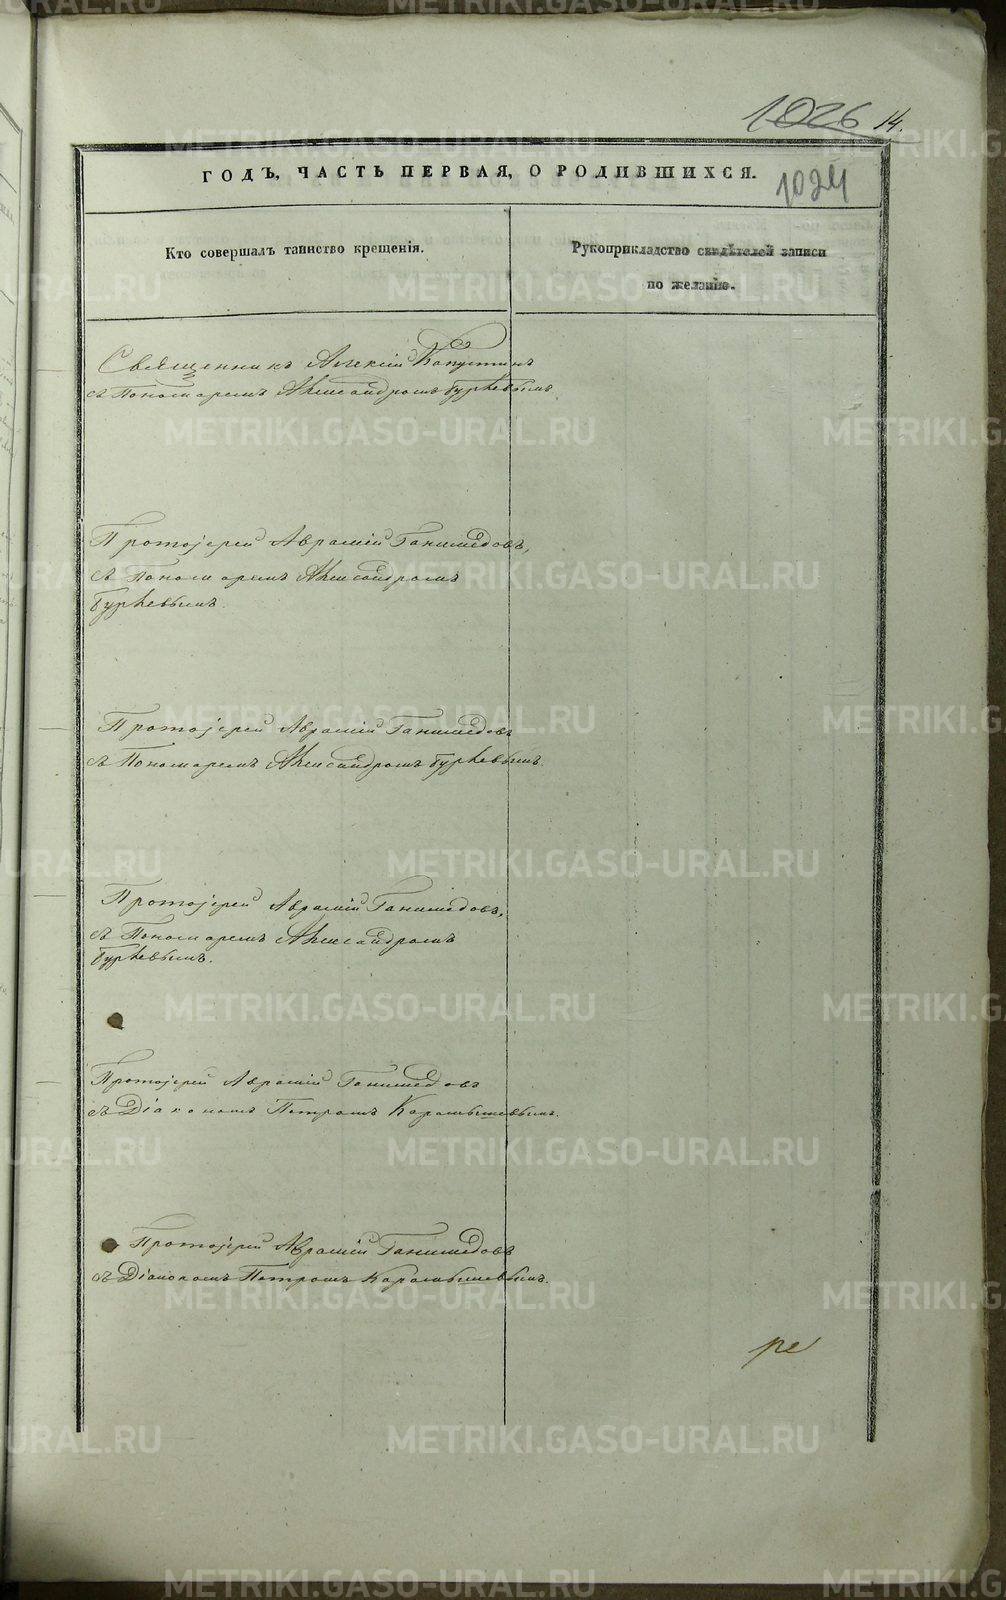 1026 14.
ГОДЪ, ЧАСТЬ ПЕРВАЯ, О РОДИВШИХСЯ.
1024
Кто совершалъ таинство крещенія.
Рукоприкладство свидѣтелей записи
по желанію.
Священникъ Алексій Капустинъ
съ Пономаремъ Александромъ Гуркевымъ
Протоіерей Аврамій Ганимедовъ,
съ Пономаремъ Александромъ
Гуркевымъ.
Протоіерей Аврамій Ганимедовъ
съ Пономаремъ Александромъ Гуркевымъ.
Протоіерей Аврамій Ганимедовъ,
съ Пономаремъ Александромъ
Гуркевымъ.
Протоіерей Аврамій Ганимедовъ
съ Діакономъ Петромъ Карамышевымъ.
Протоіерей Аврамій Ганимедовъ
съ Діакономъ Петромъ Карамышевымъ.
ре
METRIKI.GASO-URAL.RU